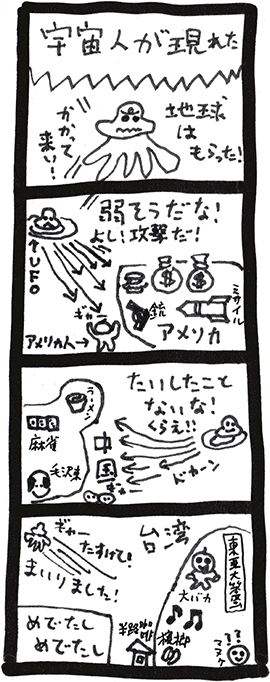 宇宙人が現れた
地球は
もらった!
かかって
来い!
弱そうだな!
よし!攻撃だ!
↑UFO
$ $
ミサイル
銃
アメリカ
ギャー
アメリカ人→
たいしたこと
ないな!
くらえ!!
ラーメン
麻雀
中国
毛沢東
ギャー
ドカーン
台湾
ギャー
たすけて!
まいりました!
東亜大笨蛋
大バカ
檳榔
半路咖啡
??
マヌケ
めでたし
めでたし